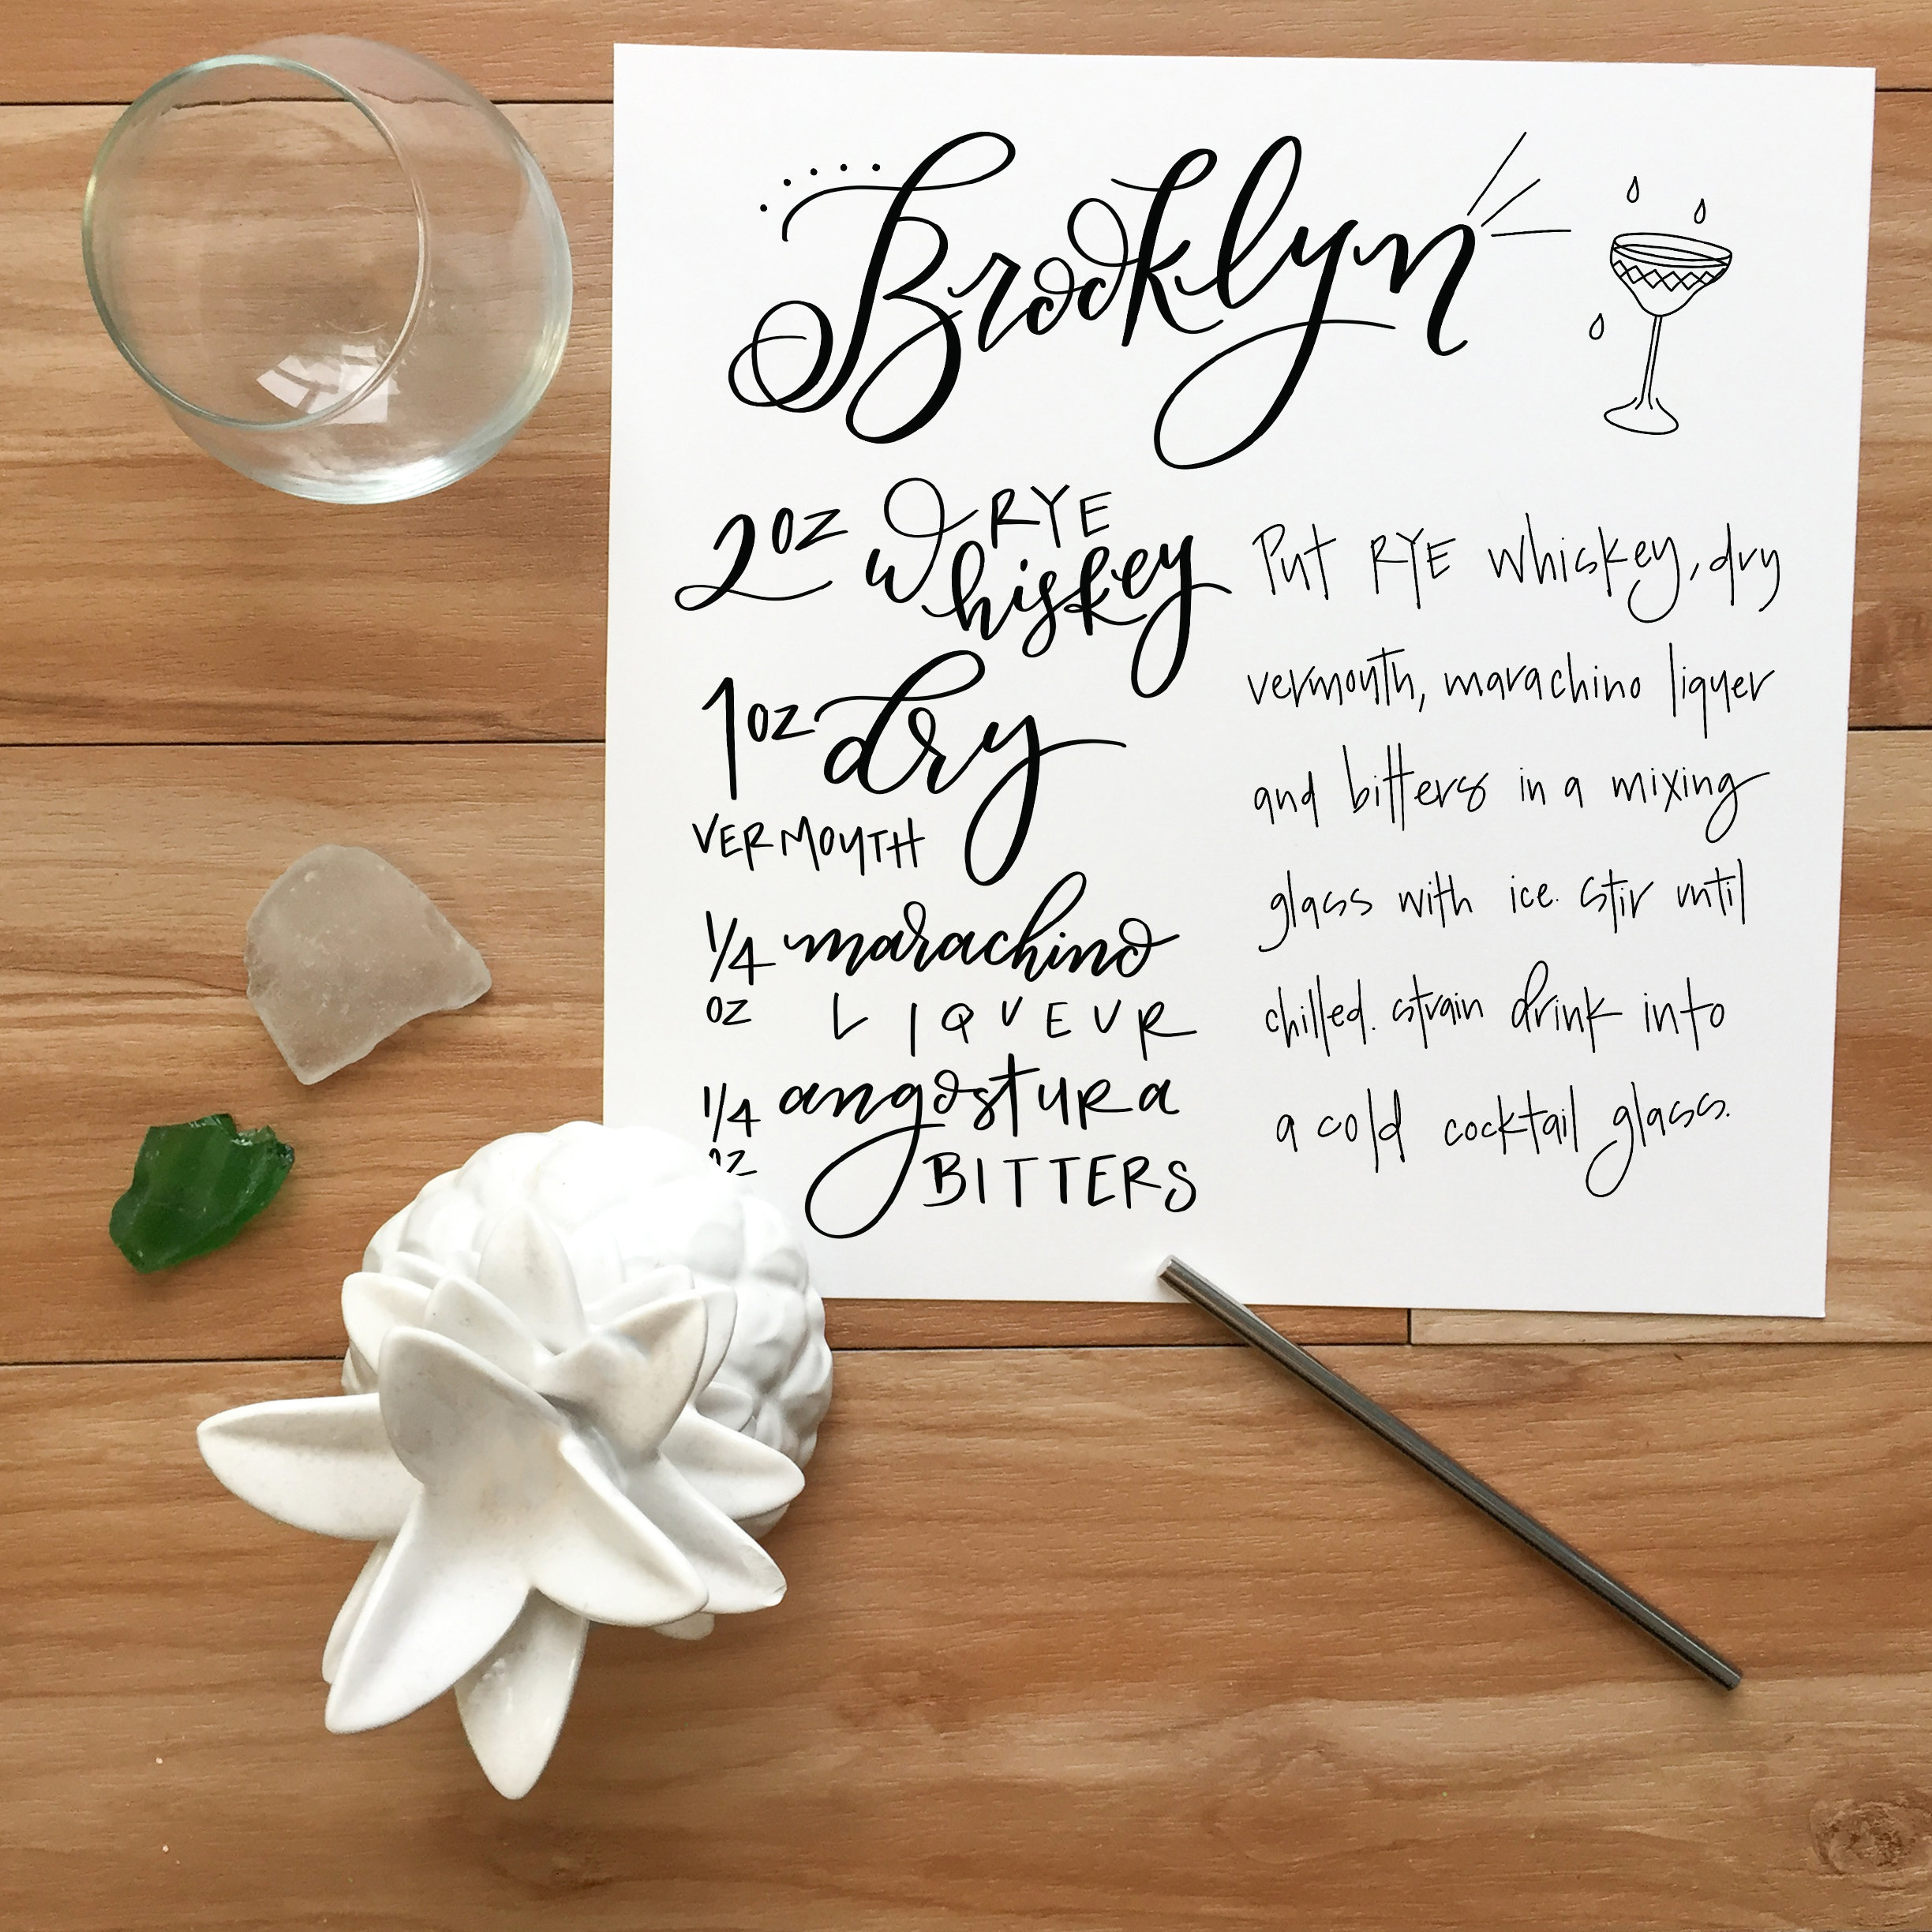 Brooklyn
2 oz RYE
whiskey
1 oz dry
VERMOUTH
1/4 marachino
oz LIQUEUR
1/4 angostura
oz BITTERS
Put RYE whiskey, dry
vermouth, marachino liquer
and bitters in a mixing
glass with ice. stir until
chilled. strain drink into
a cold cocktail glass.